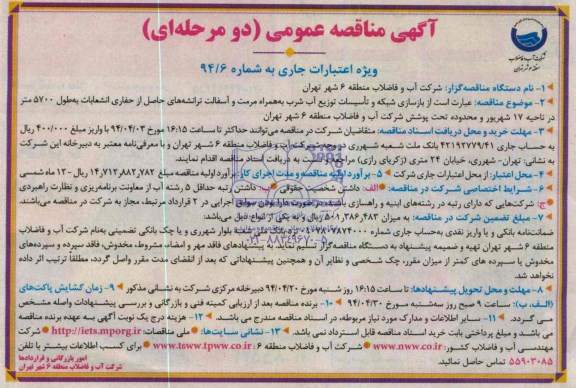 آگهی مناقصه عمومی (دو مرحله‌ای)
ویژه اعتبارات جاری به شماره ۹۴/۶
۱- نام دستگاه مناقصه‌گزار: شرکت آب و فاضلاب منطقه ۶ شهر تهران
۲- موضوع مناقصه: عبارت است از بازسازی شبکه و تأسیسات توزیع آب شرب به‌همراه مرمت و آسفالت ترانشه‌های حاصل از حفاری انشعابات به‌طول ۵۷۰۰ متر
در ناحیه ۱۷ شهریور و محدوده تحت پوشش شرکت آب و فاضلاب منطقه ۶ شهر تهران
۳- مهلت خرید و محل دریافت اسناد مناقصه: متقاضیان شرکت در مناقصه می‌توانند حداکثر تا ساعت ۱۶:۱۵ مورخ ۹۴/۰۴/۰۳ با واریز مبلغ ۴۰۰/۰۰۰ ریال
به حساب جاری ۴۲۱۹۲۷۷۹/۴۱ بانک ملت شعبه شهرری در وجه شرکت آب و فاضلاب منطقه ۶ شهر تهران و با معرفی‌نامه معتبر به دبیرخانه این شرکت
به نشانی: تهران- شهرری، خیابان ۲۴ متری (زکریای رازی) مراجعه و نسبت به دریافت اسناد مناقصه اقدام نمایند.
۴- محل اعتبار: از محل اعتبارات جاری شرکت ۵- برآورد اولیه مناقصه و مدت اجرای کار: برآورد اولیه مناقصه مبلغ ۱۴,۷۱۲,۸۸۲,۷۸۲ ریال- ۱۲ ماه شمسی
۶- شرایط اختصاصی شرکت در مناقصه: الف: داشتن شخصیت حقوقی ب: داشتن رتبه حداقل ۵ رشته آب از معاونت برنامه‌ریزی و نظارت راهبردی
ج: شرکت‌هایی که دارای رتبه در رشته‌های ابنیه و راهسازی باشند، در صورت دارا بودن سوابق اجرایی در ۲ قرارداد مرتبط، مجاز به شرکت در مناقصه می‌باشند.
۷- مبلغ تضمین شرکت در مناقصه: به میزان ۵۰۱,۳۸۶,۴۸۳ ریال و به یکی از انواع ذیل می‌باشد:
ضمانت‌نامه بانکی و یا واریز نقدی به‌حساب جاری شماره نزد بانک ملت شعبه بلوار شهرری و یا چک بانکی تضمینی به‌نام شرکت آب و فاضلاب
منطقه ۶ شهر تهران تهیه و ضمیمه پیشنهاد به دستگاه مناقصه‌گزار تسلیم نماید. به پیشنهادهای فاقد مهر و امضاء، مشروط، مخدوش، فاقد سپرده و سپرده‌های
مخدوش یا سپرده های کمتر از میزان مقرر، چک شخصی و نظایر آن و همچنین پیشنهاداتی که بعد از انقضای مدت مقرر واصل گردد، مطلقا ترتیب اثر داده
نخواهد شد.
۸- مهلت و محل تحویل پیشنهادها: تا ساعت ۱۶:۱۵ روز شنبه مورخ ۹۴/۰۴/۲۰ دبیرخانه مرکزی شرکت به نشانی مذکور ۹- زمان گشایش پاکت‌های
(الف، ب): ساعت ۹ صبح روز سه‌شنبه مورخ ۹۴/۰۴/۳۰ ۱۰- برنده مناقصه بعد از ارزیابی کمیته فنی و بازرگانی و بررسی پیشنهادات واصله مشخص
می گردد. ۱۱- سایر اطلاعات و مدارک مورد نیاز مربوطه، در اسناد مناقصه مندرج می باشد. ۱۲- هزینه درج یک نوبت آگهی به عهده برنده مناقصه
می باشد و مبلغ پرداختی بابت خرید اسناد مناقصه قابل استرداد نمی باشد. ۱۳- نشانی سایت‌ها: ملی مناقصات: http://iets.mporg.ir شرکت
مهندسی آب و فاضلاب کشور: www.nww.co.ir شرکت آب و فاضلاب منطقه ۶: www.tsww.tpww.co.ir برای کسب اطلاعات بیشتر با تلفن
۵۵۹۰۳۰۸۵ تماس حاصل نمائید.
امور بازرگانی و قراردادها
شرکت آب و فاضلاب منطقه ۶ شهر تهران